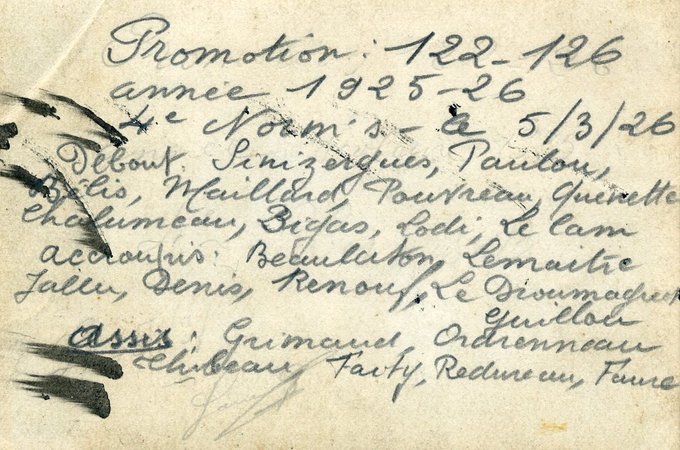 Promotion : 122-126
année 1925-26
4e Norm's - le 5/3/26
Debout. Sinizergues, Paulou,
Bélis, Maillard, Pouvreau, Quenette
Chalumeau, Bigas, Lodi, Le Cam
accroupis : Beaulaton, Lemaitre
Jallu, Denis, Renouf, Le
Guillou
assis : Grimaud, Ordrenneau
Thibeau, Farty, Redureau, Faure